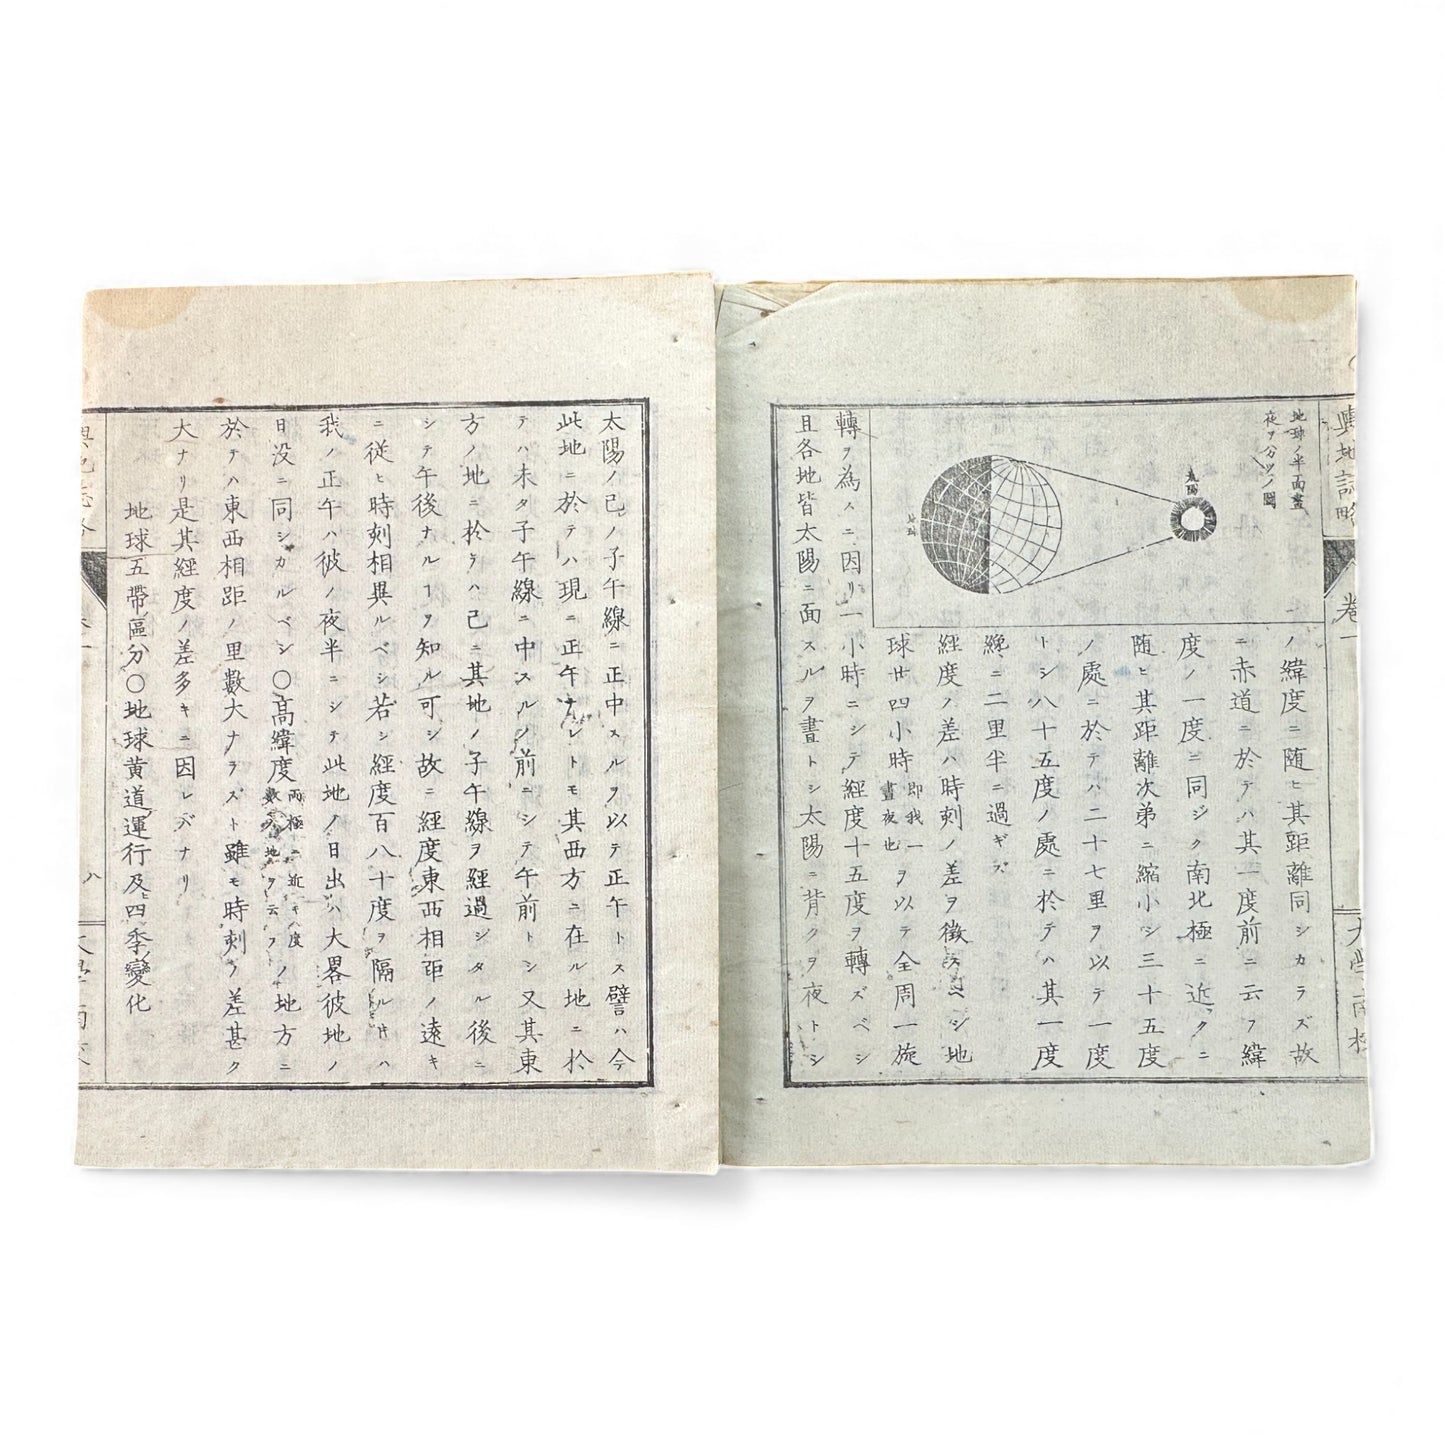 輿地誌略
卷一
大學南校
地球ノ半面晝
夜ヲ分ツノ圖
太陽
地球
ノ緯度ニ随ヒ其距離同シカラズ故
ニ赤道ニ於テハ其一度前ニ云フ緯
度ノ一度ニ同ジク南北極ニ近クニ
随ヒ其距離次弟ニ縮小シ三十五度
ノ處ニ於テハ二十七里ヲ以テ一度
トシ八十五度ノ處ニ於テハ其一度
纔ニ二里半ニ過ギズ
經度ノ差ハ時刻ノ差ヲ徴スベシ地
球廿四小時即我一晝夜也ヲ以テ全周一旋
轉ヲ為スニ因リ一小時ニシテ經度十五度ヲ轉ズベシ
且各地皆太陽ニ面スルヲ晝トシ太陽ニ背クヲ夜トシ
太陽ノ己ノ子午線ニ正中スルヲ以テ正午トス譬ハ今
此地ニ於テハ現ニ正午ナレトモ其西方ニ在ル地ニ於
テハ未タ子午線ニ中スルノ前ニシテ午前トシ又其東
方ノ地ニ於テハ己ニ其地ノ子午線ヲ經過シタル後ニ
シテ午後ナルヿヲ知ル可シ故ニ經度東西相距ノ遠キ
ニ従ヒ時刻相異ルベシ若シ經度百八十度ヲ隔ル片ハ
我ノ正午ハ彼ノ夜半ニシテ此地ノ日出ハ大畧彼地ノ
日没ニ同シカルベシ〇高緯度兩極ニ近キ度數ノ地ヲ云フノ地方ニ
於テハ東西相距ノ里數大ナラズト雖モ時刻ノ差甚ク
大ナリ是其經度ノ差多キニ因レバナリ
地球五帶區分〇地球黄道運行及ヒ四季變化
八